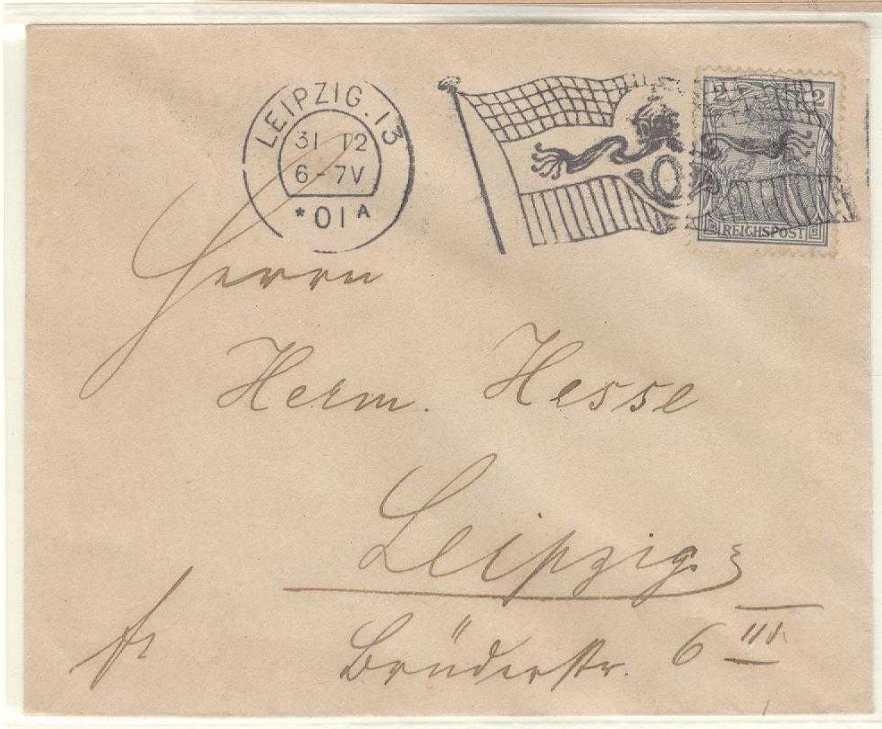 LEIPZIG.13
31 12
6-7V
*01A
2 2
REICHSPOST
Herrn
Herm. Hesse
Leipzig
fr
Brüderstr. 6 III